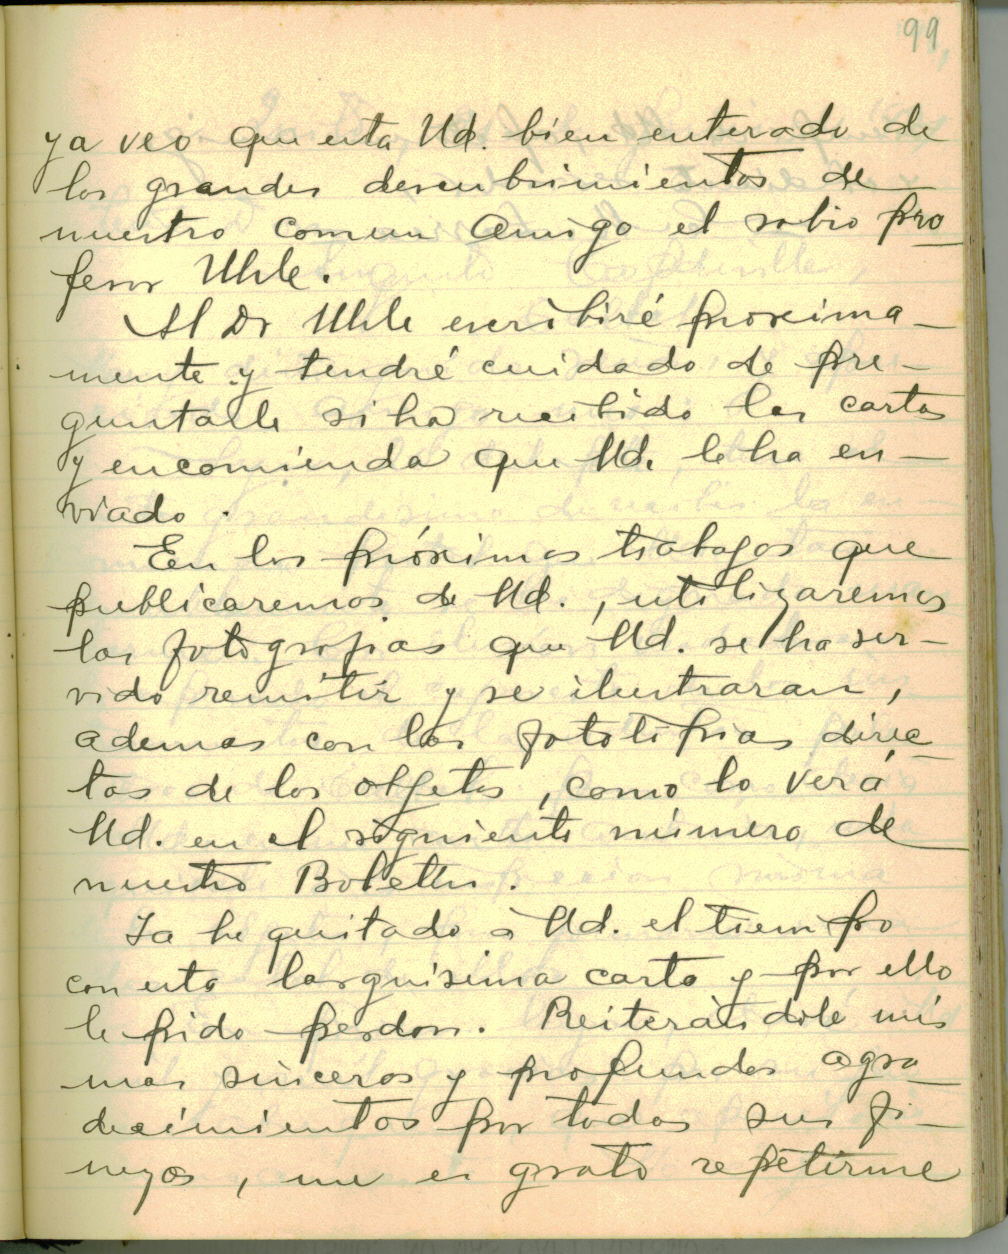 99,
ya veo que esta Ud. bien enterado de
los grandes descubrimientos de
nuestro comun amigo el sabio pro
fesor Uhle.
Al Dr Uhle escribiré proxima-
mente y tendré cuidado de pre-
guntarle si ha recibido las cartas
y encomienda que Ud. le ha en-
viado.
En los próximos trabajos que
publicaremos de Ud., utilizaremos
las fotografias que Ud. se ha ser-
vido remitir y se ilustraran,
ademas con las fototipias direc
tas de los objetos, como lo verá
Ud. en el siguiente número de
nuestro Boletin.
Ya he quitado á Ud. el tiempo
con esta larguisima carta y por ello
le pido perdon. Reiterándole mis
mas sinceros y profundos agra
decimientos por todas sus fi-
nezas, me es grato repetirme